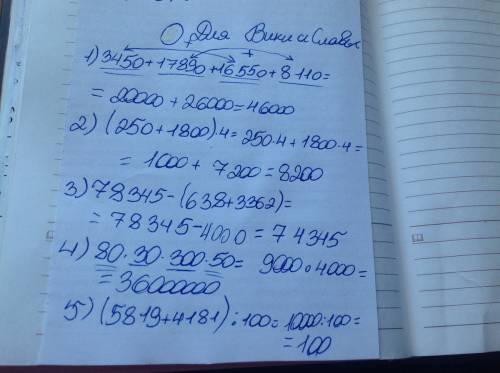 Для Вики и Славы
1) 3450+17890+16550+8110=
= 20000+26000=46000
2) (250+1800)·4=250·4+1800·4=
= 1000+7200=8200
3) 78345-(638+3362)=
= 78345-4000=74345
4) 80·30·300·50= 9000·4000=
= 3600000
5) (5819+4181):100=1000:100=
=100